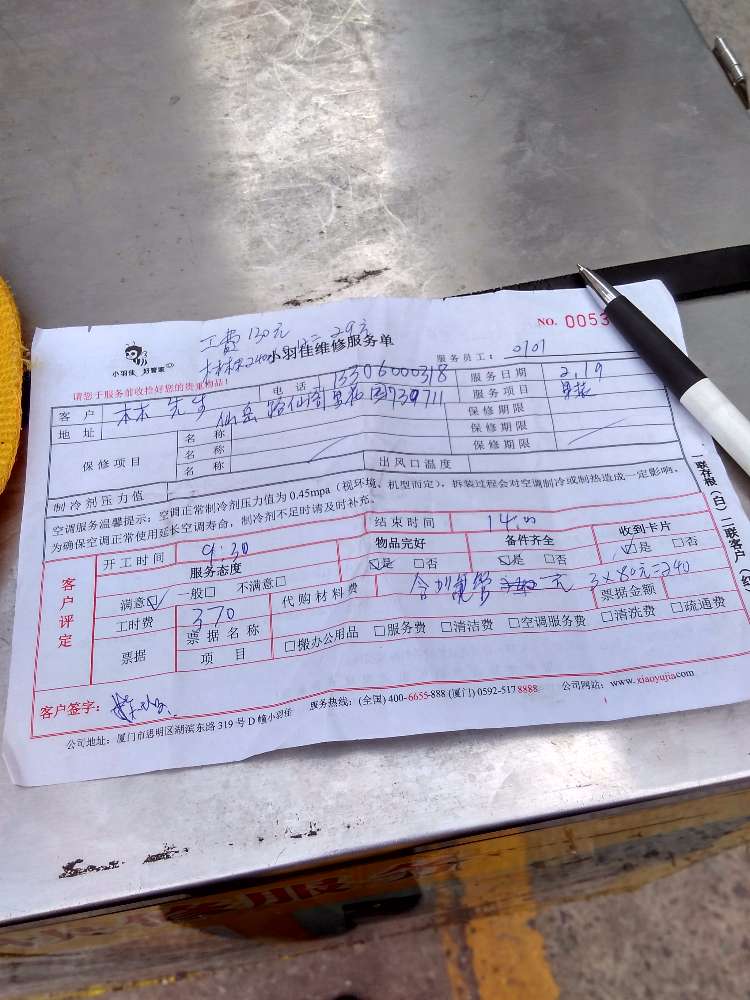 工费130元
NO. 0053
小羽佳 好管家
小羽佳维修服务单
服务员工： 0101
请您于服务前收拾好您的贵重物品！
客户 先生 电话 13306000318 服务日期 2.19
地址 仙岳路 服务项目
保修项目 名称 保修期限
名称 保修期限
名称 保修期限
制冷剂压力值 出风口温度
空调服务温馨提示：空调正常制冷剂压力值为0.45mpa（视环境、机型而定），拆装过程会对空调制冷或制热造成一定影响，
为确保空调正常使用延长空调寿命，制冷剂不足时请及时补充。
客户评定
开工时间 9:30 结束时间 14:00
服务态度 物品完好 备件齐全 收到卡片
满意☑ 一般□ 不满意□ ☑是 □否 ☑是 □否 ☑是 □否
工时费 370 代购材料费 元 3×80元=240
票据 票据名称 票据金额
项目 □搬办公用品 □服务费 □清洁费 □空调服务费 □清洗费 □疏通费
客户签字：
服务热线：(全国) 400-6655-888 (厦门) 0592-5178888 公司网站：www.xiaoyujia.com
公司地址：厦门市思明区湖滨东路319号D幢小羽佳
一联存根（白）二联客户（红